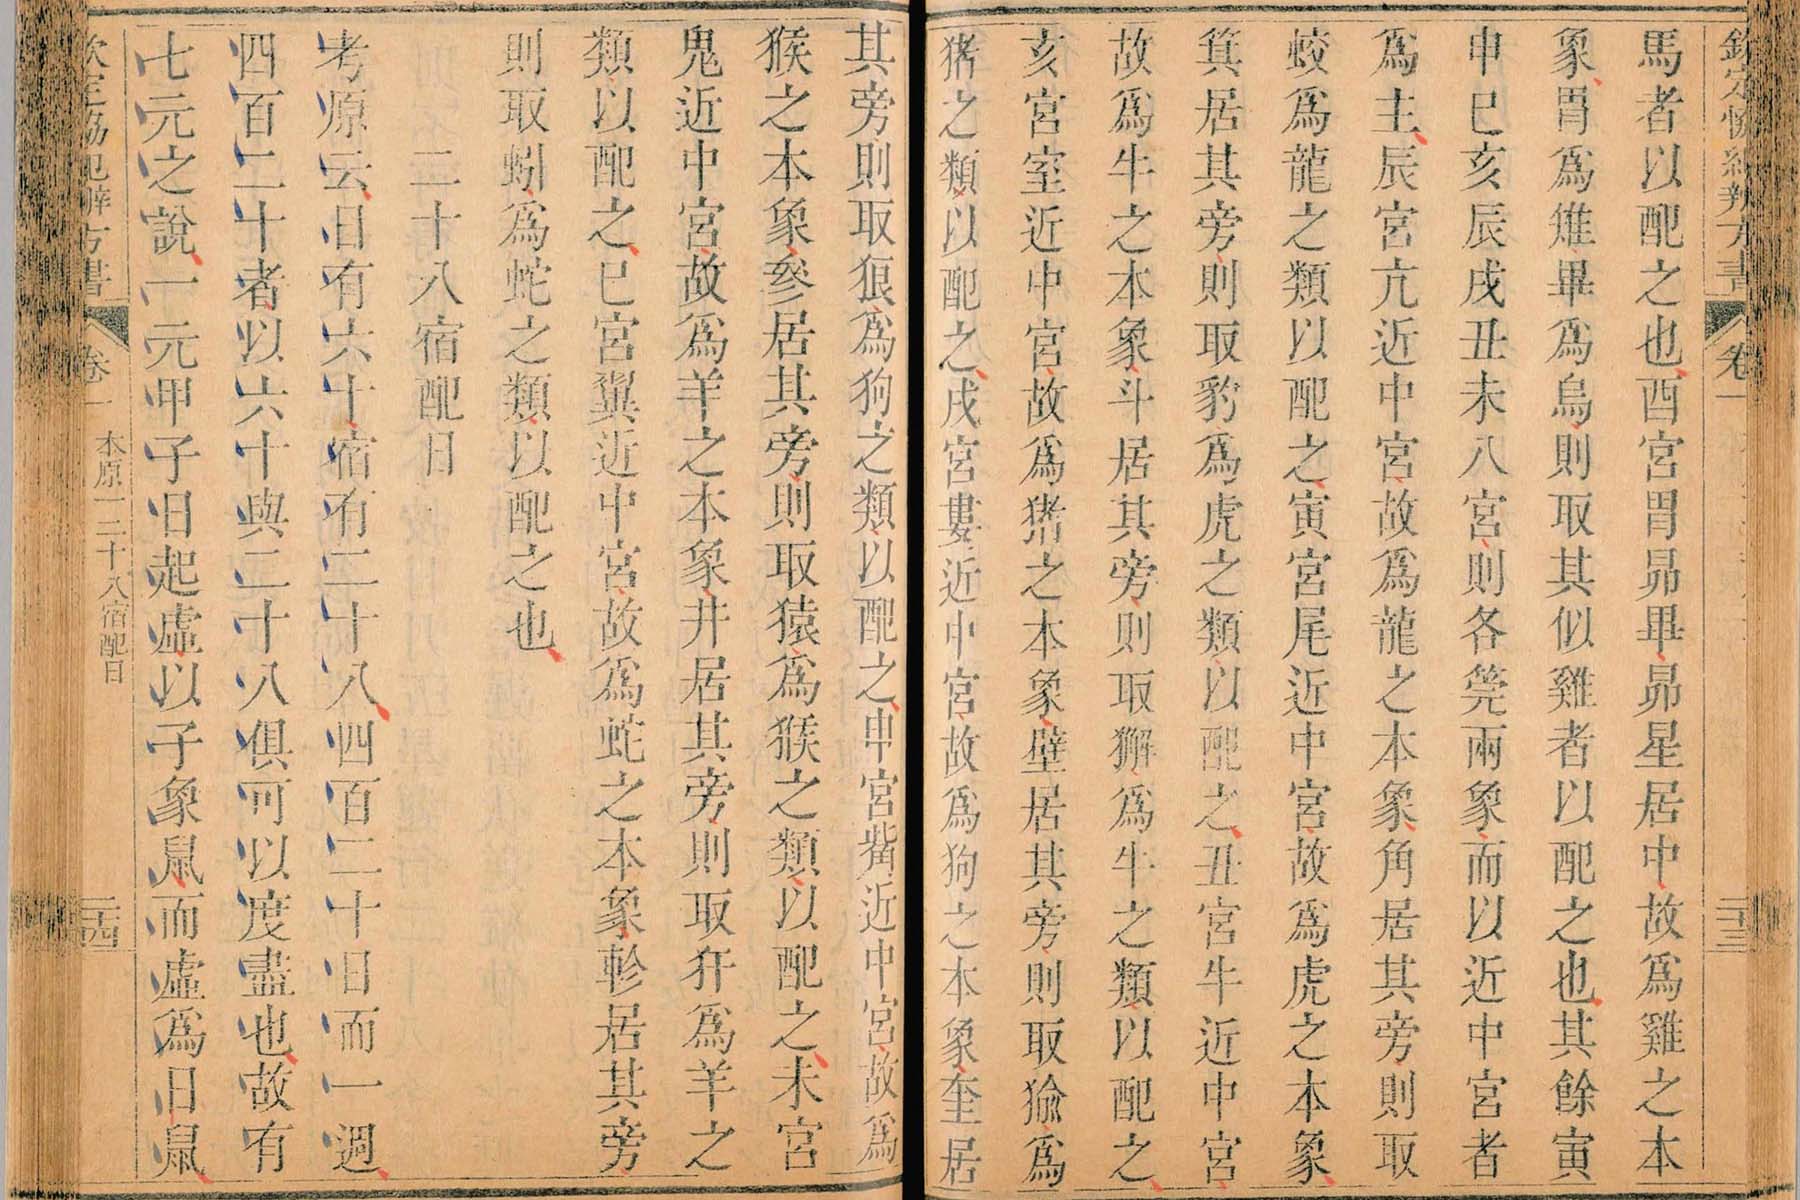 欽定協紀辨方書 卷一 二十三
馬者以配之也酉宮胃昴畢昴星居中故爲雞之本
象胃爲雉畢爲烏則取其似雞者以配之也其餘寅
申巳亥辰戌丑未八宮則各筦兩象而以近中宮者
爲主辰宮亢近中宮故爲龍之本象角居其旁則取
蛟爲龍之類以配之寅宮尾近中宮故爲虎之本象
箕居其旁則取豹爲虎之類以配之丑宮牛近中宮
故爲牛之本象斗居其旁則取獬爲牛之類以配之
亥宮室近中宮故爲猪之本象壁居其旁則取㺄爲
猪之類以配之戌宮婁近中宮故爲狗之本象奎居
其旁則取狼爲狗之類以配之申宮觜近中宮故爲
猴之本象參居其旁則取猿爲猴之類以配之未宮
鬼近中宮故爲羊之本象井居其旁則取犴爲羊之
類以配之巳宮翼近中宮故爲蛇之本象軫居其旁
則取蚓爲蛇之類以配之也
二十八宿配日
考原云日有六十宿有二十八四百二十日而一週
四百二十者以六十與二十八俱可以度盡也故有
七元之說一元甲子日起虛以子象鼠而虛爲日鼠
欽定協紀辨方書 卷一 本原一二十八宿配日 二十四